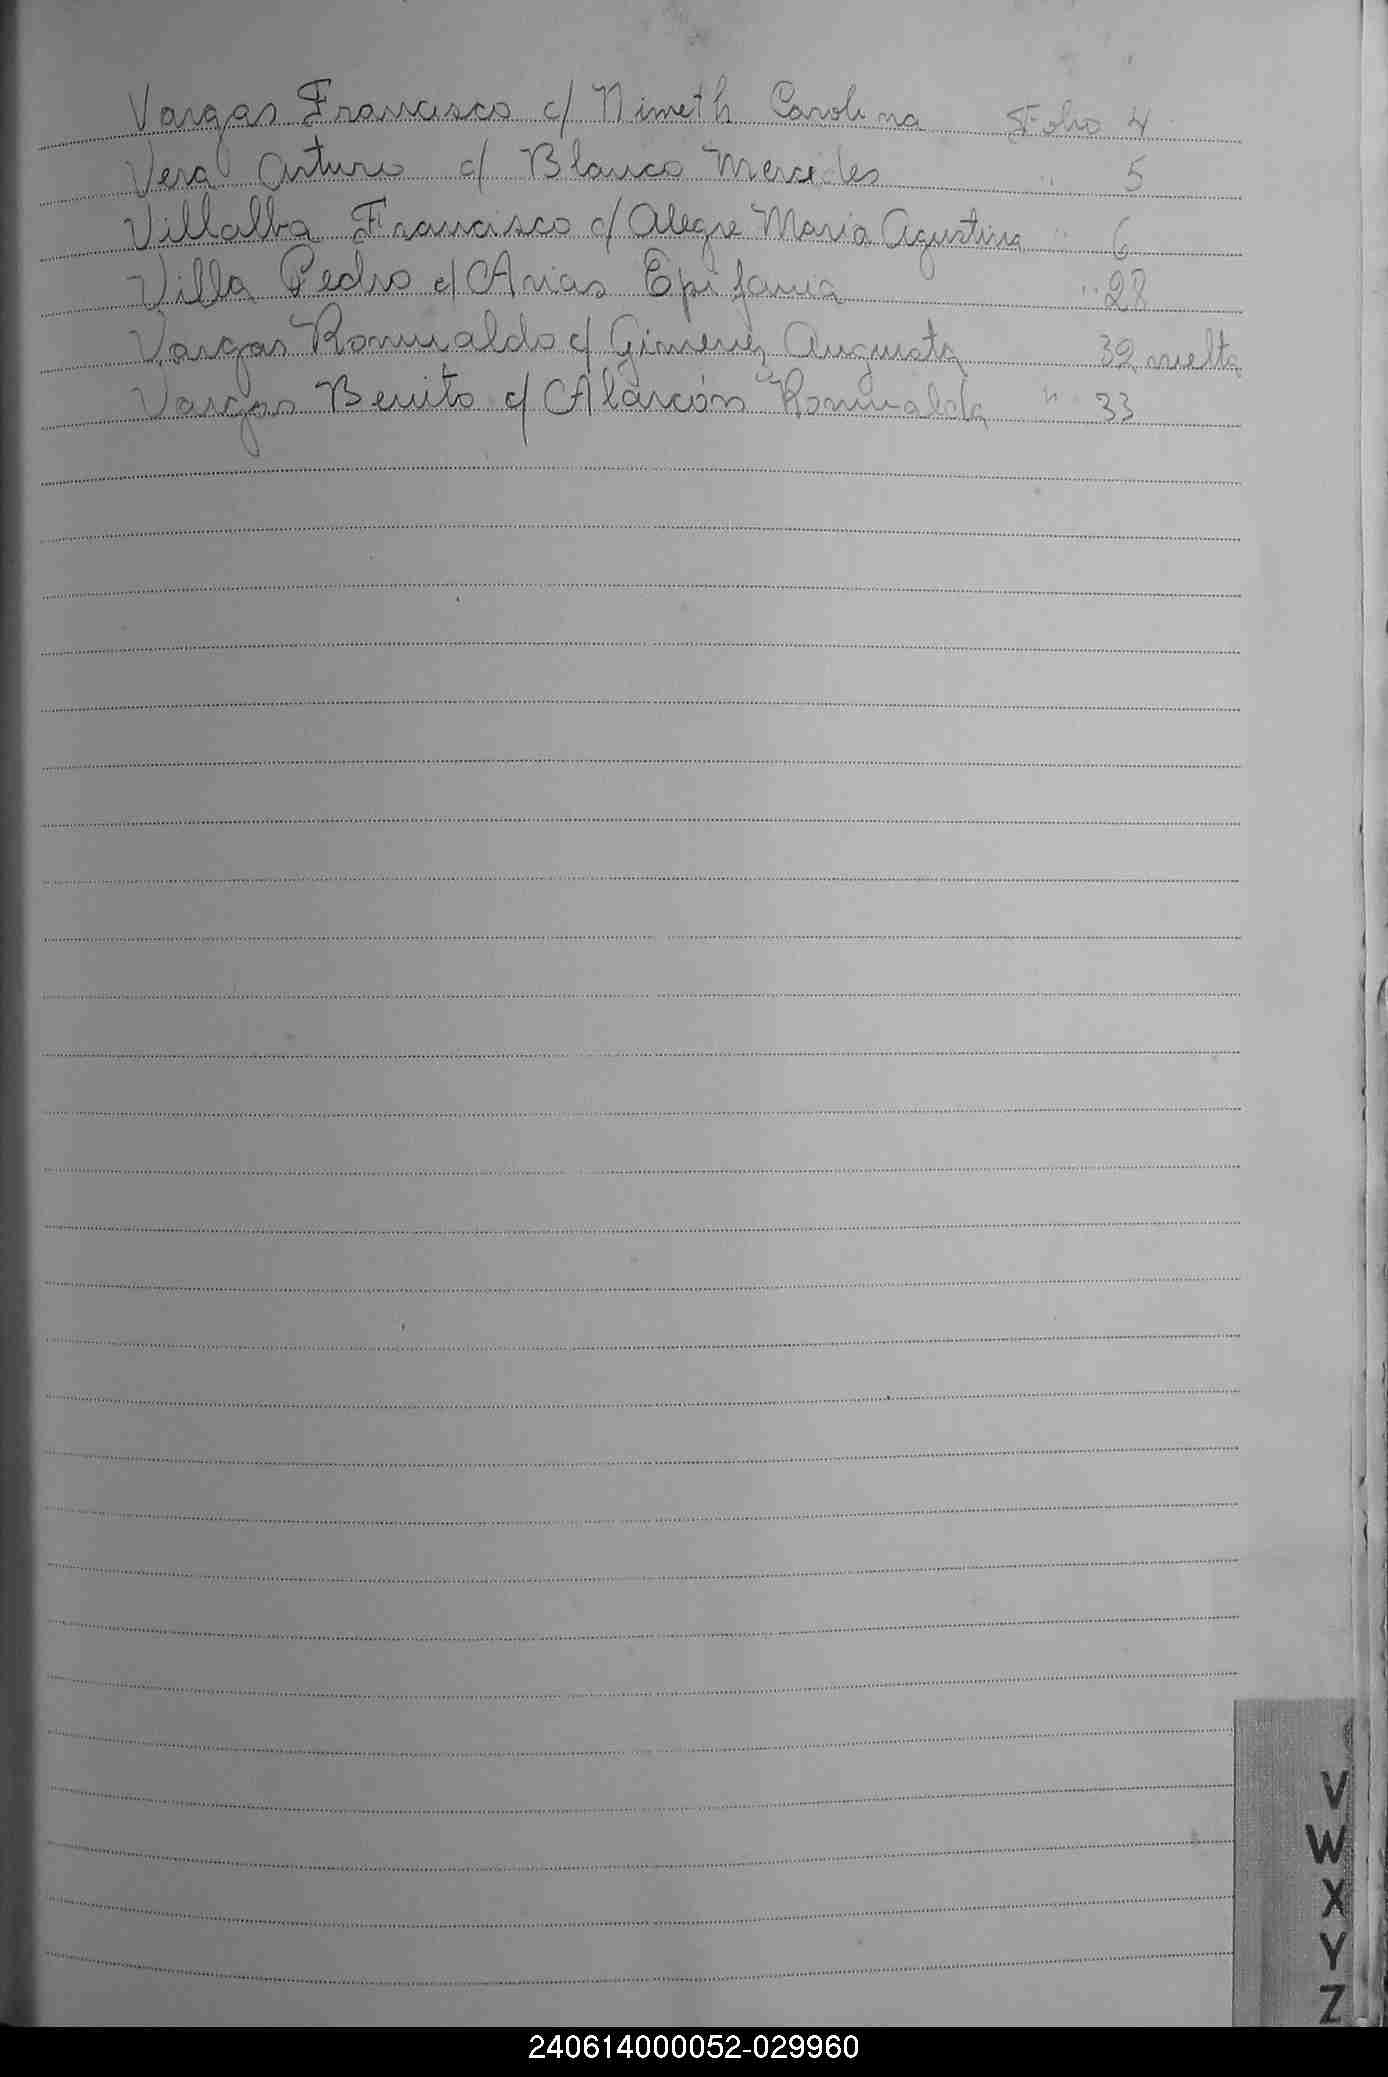 Vargas Francisco c/ Nimeth Carolina Folio 4
Vera Arturo c/ Blanco Mercedes " 5
Villalba Francisco c/ Alegre Maria Agustina " 6
Villa Pedro c/ Arias Epifania " 28
Vargas Romualdo c/ Gimenez Augusta 32 vuelta
Vargas Benito c/ Alarcón Romualda " 33
V
W
X
Y
Z
240614000052-029960